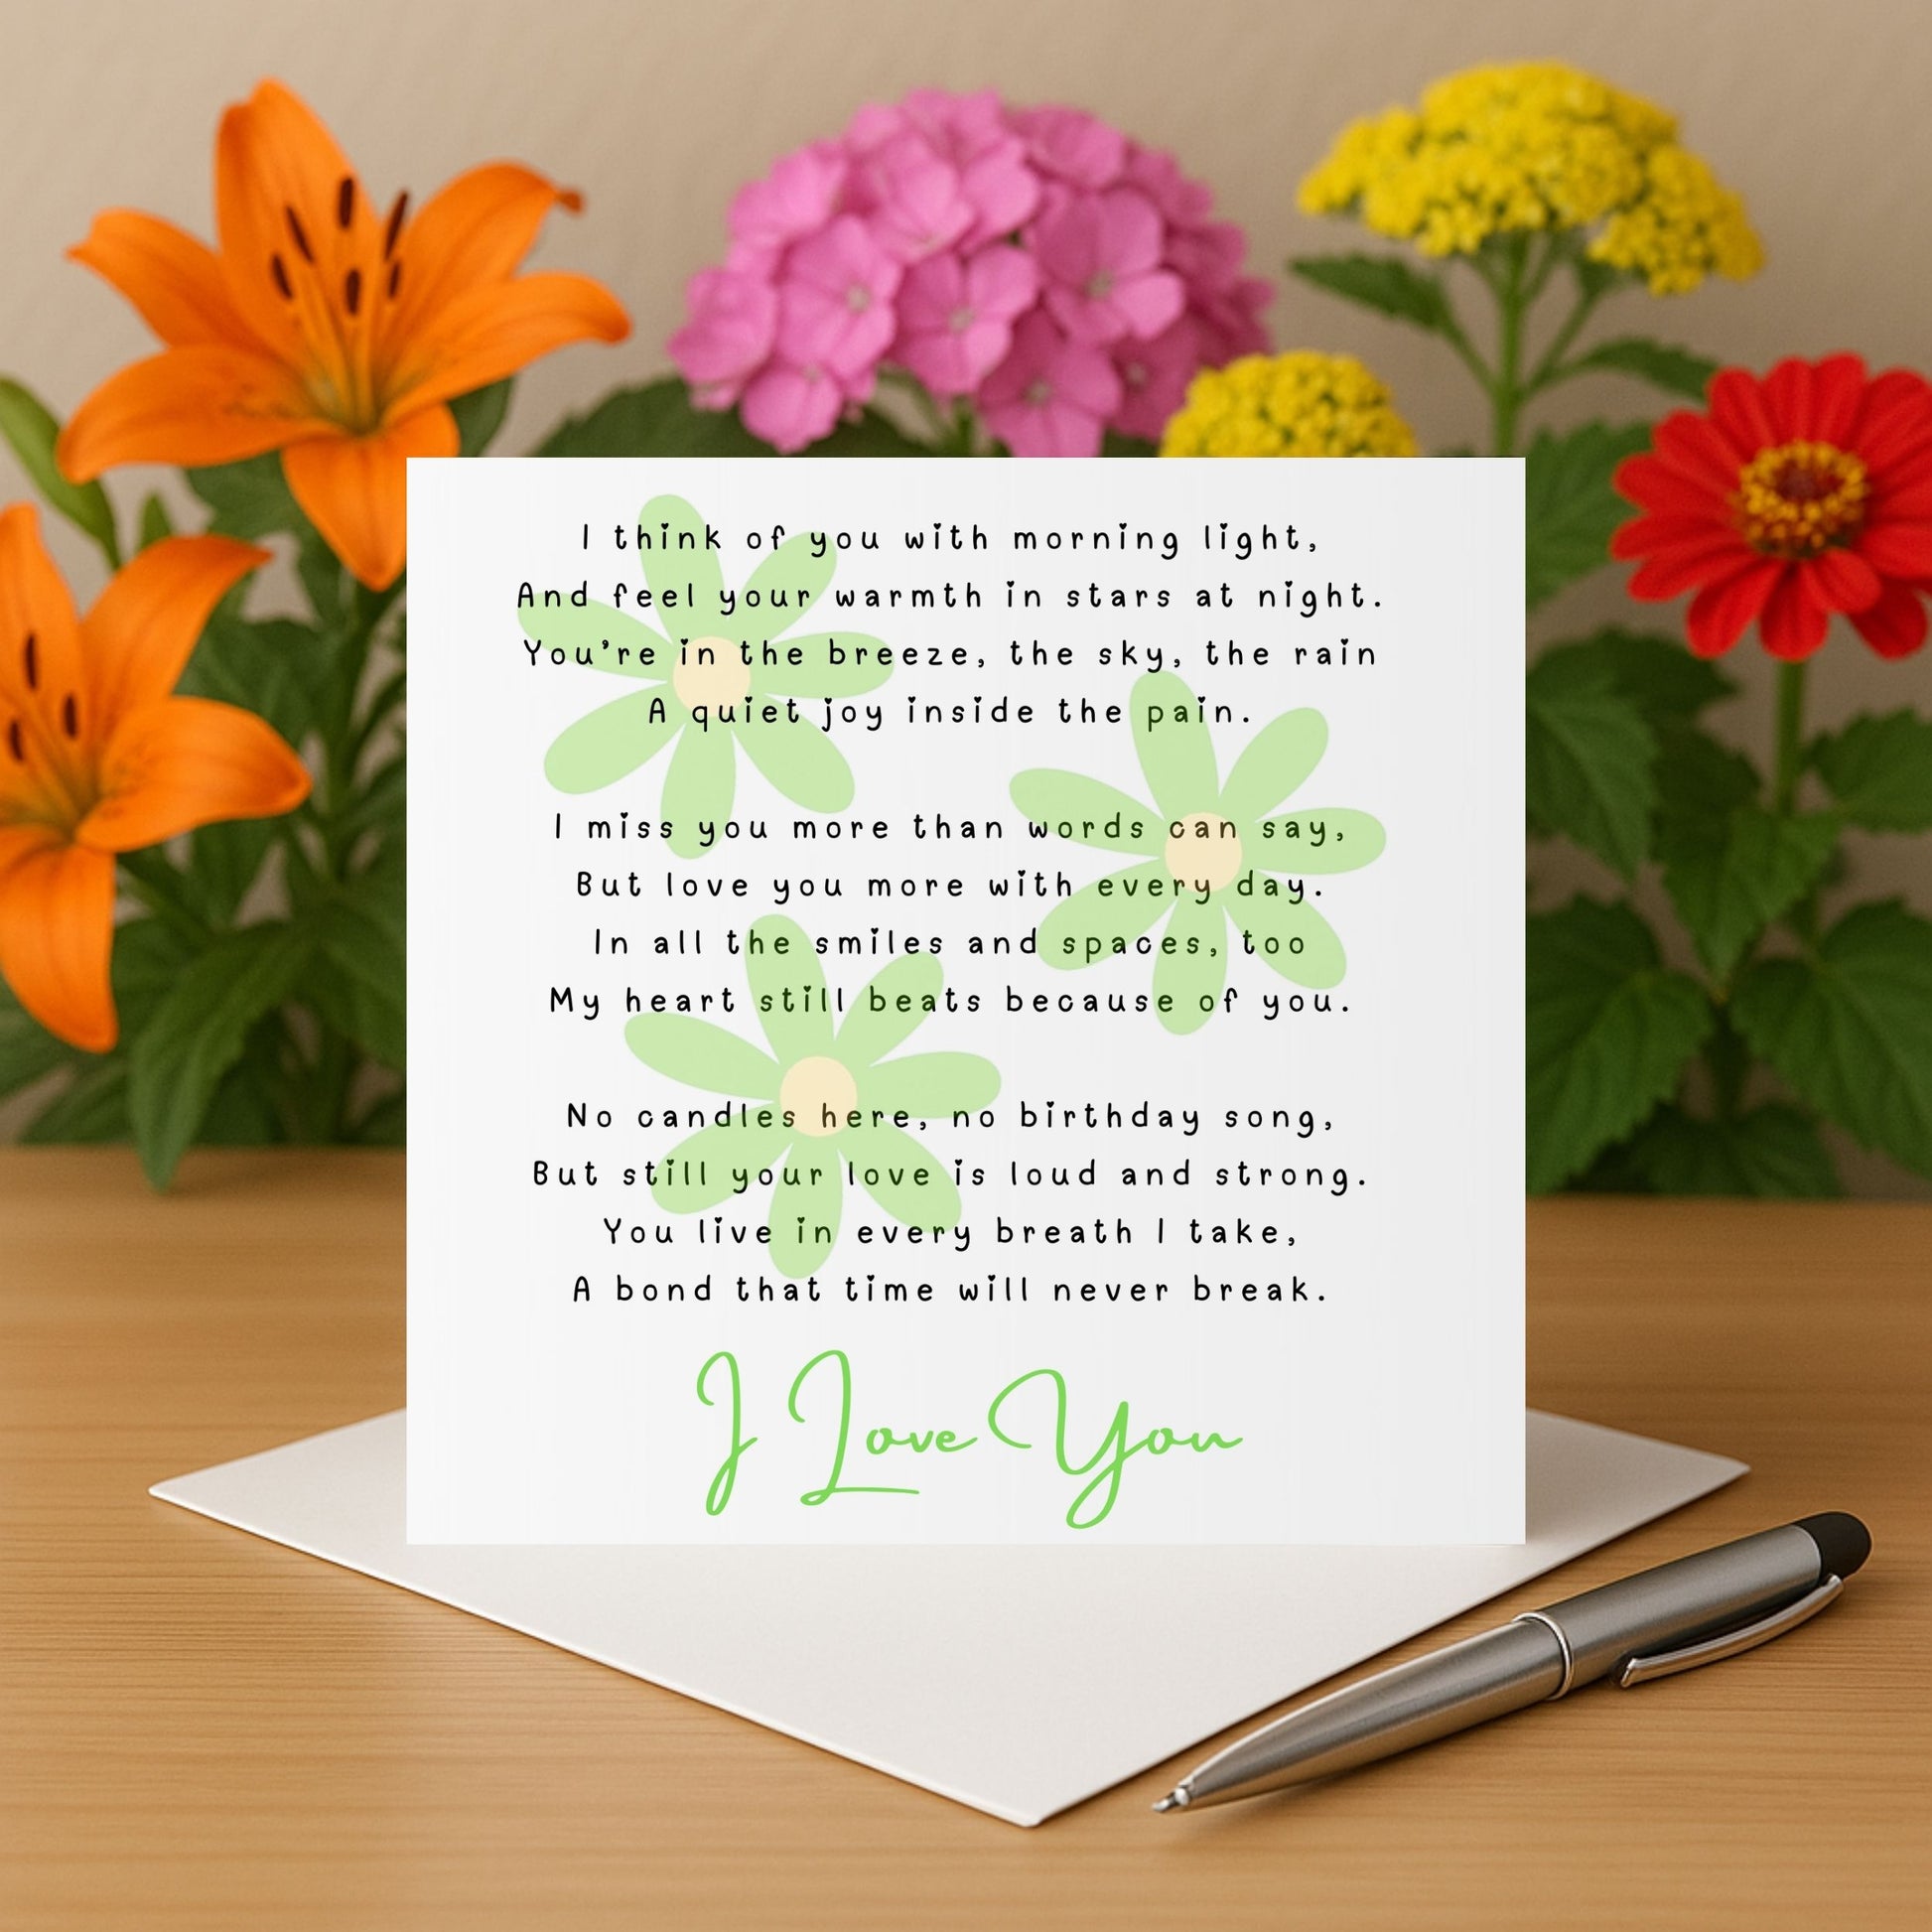 I think of you with morning light,
And feel your warmth in stars at night.
You're in the breeze, the sky, the rain
A quiet joy inside the pain.
I miss you more than words can say,
But love you more with every day.
In all the smiles and spaces, too
My heart still beats because of you.
No candles here, no birthday song,
But still your love is loud and strong.
You live in every breath I take,
A bond that time will never break.
I Love You